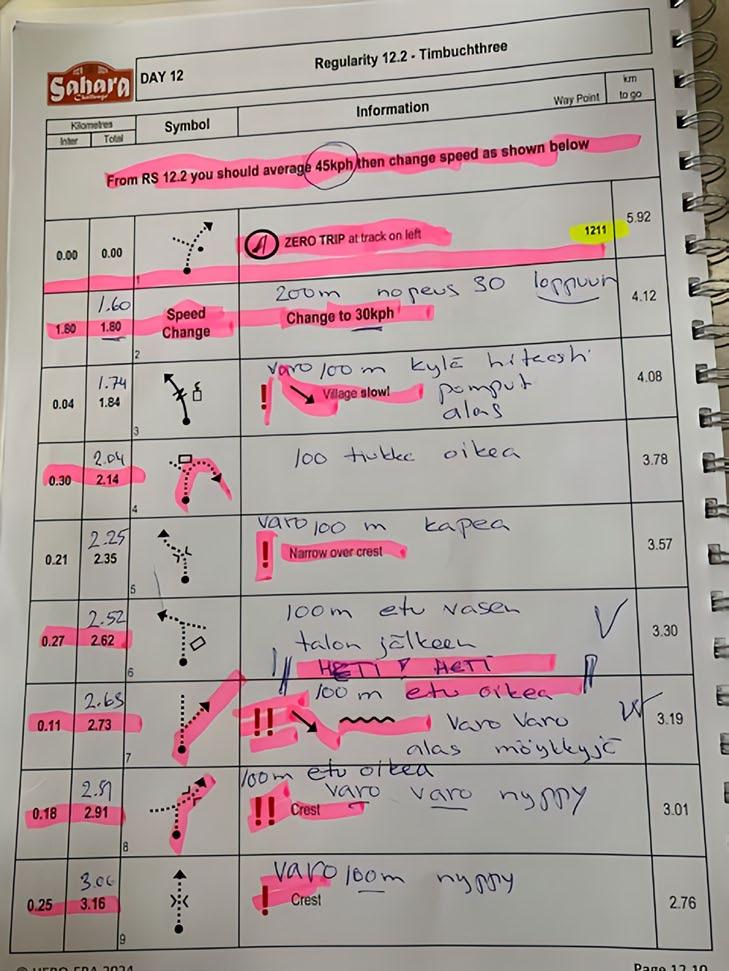 Regularity 12.2 - Timbuchthree
Sahara
Challenge
DAY 12
Kilometres
Inter
Total
Symbol
Information
Way Point
km
to go
From RS 12.2 you should average 45kph then change speed as shown below
0.00
0.00
1
A ZERO TRIP at track on left
1211
5.92
1.60
1.80
1.80
Speed
Change
2
200m nopeus 30 loppuun
Change to 30kph
4.12
1.74
0.04
1.84
3
varo 100 m kylä hitaasti
! Village slow! pomput
alas
4.08
2.04
0.30
2.14
4
100 tiukka oikea
3.78
2.25
0.21
2.35
5
varo 100 m kapea
! Narrow over crest
3.57
2.52
0.27
2.62
6
100m etu vasen
talon jälkeen
HETI HETI
3.30
0.11
2.73
7
100 m etu oikea
!! varo varo
alas möykkyjä
3.19
0.18
2.91
8
100m etu oikea
varo varo nyppy
!! Crest
3.01
3.06
0.25
3.16
9
varo 100m nyppy
! Crest
2.76
© HERO-ERA 2024
Page 12.10